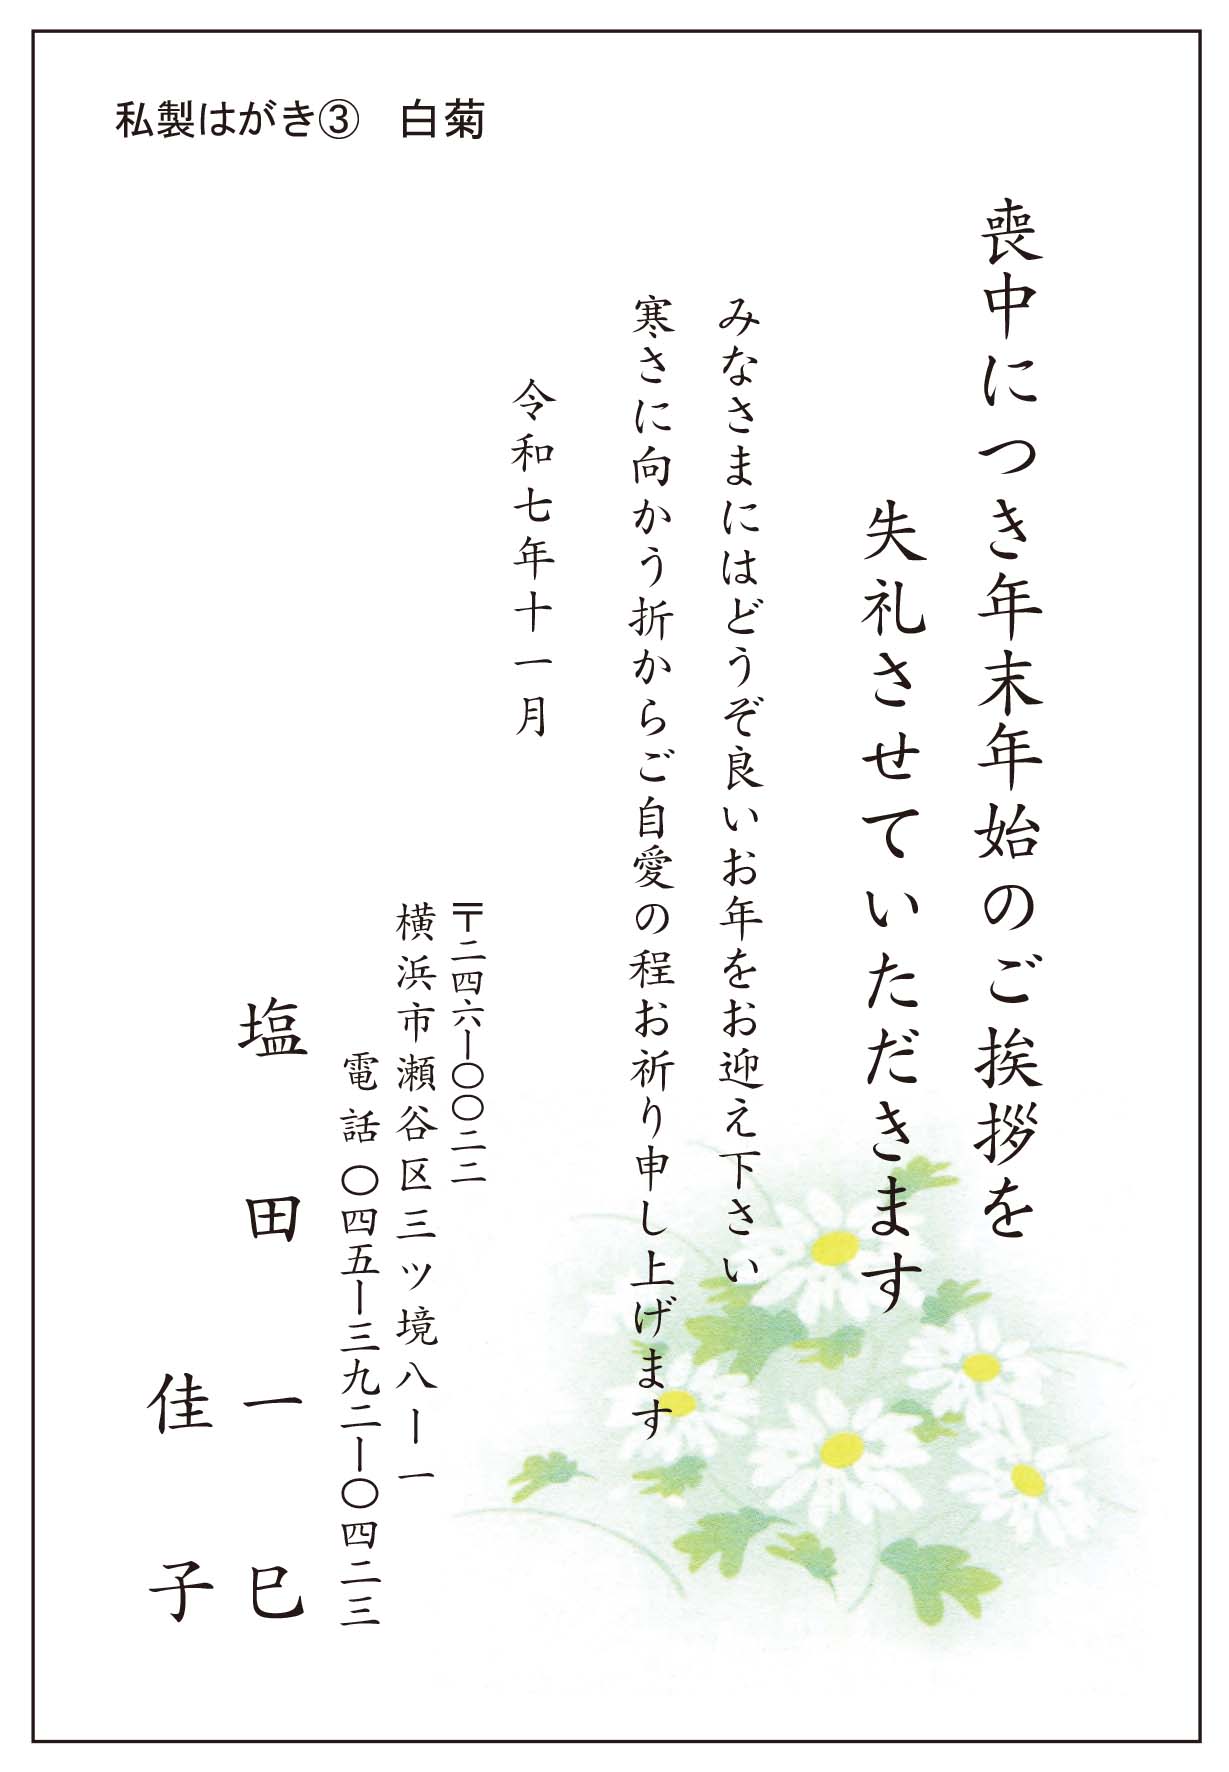 私製はがき③　白菊
喪中につき年末年始のご挨拶を
失礼させていただきます
みなさまにはどうぞ良いお年をお迎え下さい
寒さに向かう折からご自愛の程お祈り申し上げます
令和七年十一月
〒二四六ー〇〇二二
横浜市瀬谷区三ツ境八ー一
電話〇四五ー三九二ー〇四二三
塩田一巳
佳子